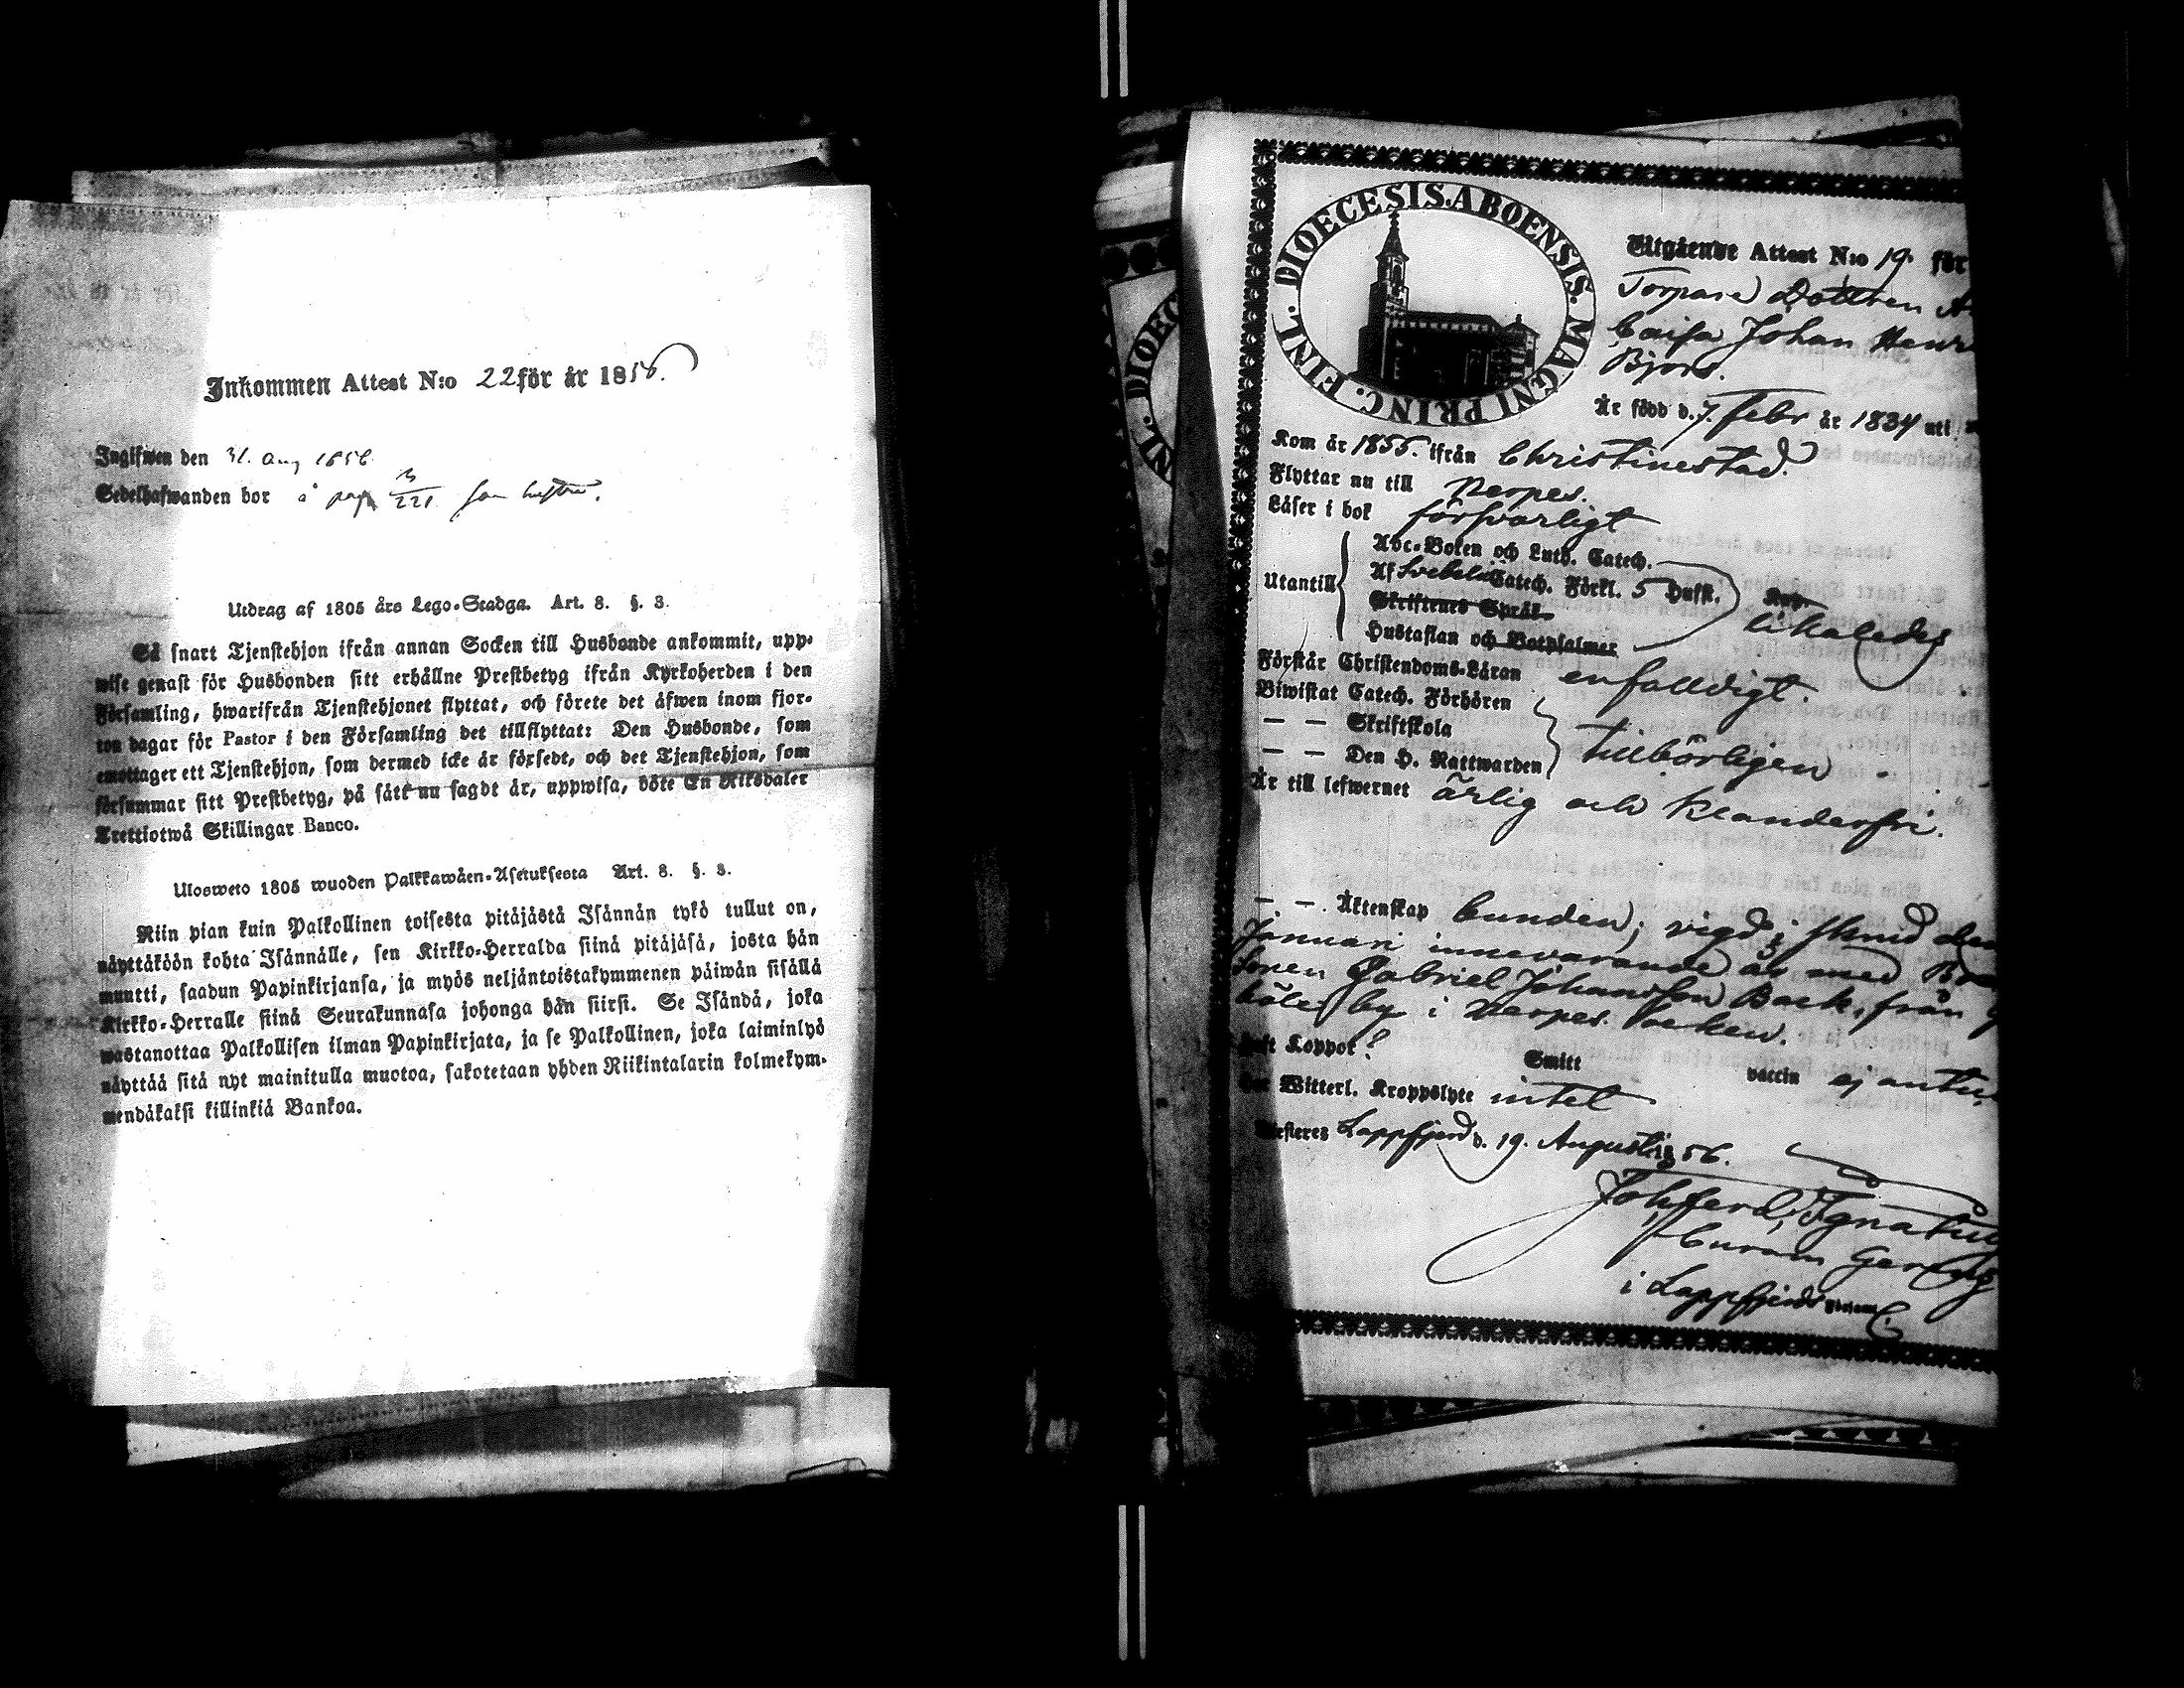 Inkommen Attest N:o 22 för år 1856.
Ingifwen den 31. Aug 1856
Sedelhafwanden bor å pag 221 som hustru.
Utdrag af 1805 års Lego-Stadga. Art. 8. §. 3.
Så snart Tjenstehjon ifrån annan Socken till Husbonde ankommit, upp-
wise genast för Husbonden sitt erhållne Prestbetyg ifrån Kyrkoherden i den
Församling, hwarifrån Tjenstehjonet flyttat, och förete det äfwen inom fjor-
ton dagar för Pastor i den Församling det tillflyttat: Den Husbonde, som
emottager ett Tjenstehjon, som dermed icke är försedt, och det Tjenstehjon, som
försummar sitt Prestbetyg, på sätt nu sagdt är, uppwisa, böte En Riksdaler
Trettiotwå Skillingar Banco.
Ulosweto 1805 wuoden Palkkawäen-Asetuksesta Art. 8. §. 3.
Niin pian kuin Palkollinen toisesta pitäjästä Isännän tykö tullut on,
näyttäköön kohta Isännälle, sen Kirkko-Herralda siinä pitäjäsä, josta hän
muutti, saadun Papinkirjansa, ja myös neljäntoistakymmenen päiwän sisällä
Kirkko-Herralle siinä Seurakunnasa johonga hän siirsi. Se Isändä, joka
wastanottaa Palkollisen ilman Papinkirjata, ja se Palkollinen, joka laiminlyö
näyttää sitä nyt mainitulla muotoa, sakotetaan yhden Riikintalarin kolmekym-
mendäkaksi killinkiä Bankoa.
FINL. DIOEC
DIOECESIS. ABOENSIS. MAGNI PRINC. FINL.
Utgående Attest N:o 19. för
Torpare Dottren
Caisa Johan
Bjors.
Är född d. 7. Febr år 1834 uti
Kom år 1855. ifrån Christinestad.
Flyttar nu till Nerpes.
Läser i bok försvarligt
Utantill
Abc-Boken och Luth. Catech.
Af Svebelii Catech. Förkl. 5 Hufst.
Skriftenes Språk
Hustaflan och Botpsalmer
likaledes
Förstår Christendoms-Läran enfalldigt.
Biwistat Catech. Förhören
— — Skriftskola
— — Den H. Nattwarden
tillbörligen.
Är till lefwernet ärlig och klanderfri.
— —. Äktenskap bunden; vigd den
Januari innevarande år med
sonen Gabriel Johansson Back, från
by i Nerpes Socken.
haft Koppor?
Smitt
vaccin ej
har Witterl. Kroppslyte intet
Lappfjerd d. 19. Augusti 56.
Joh. Ferd. Ignatius
i Lappfjerds